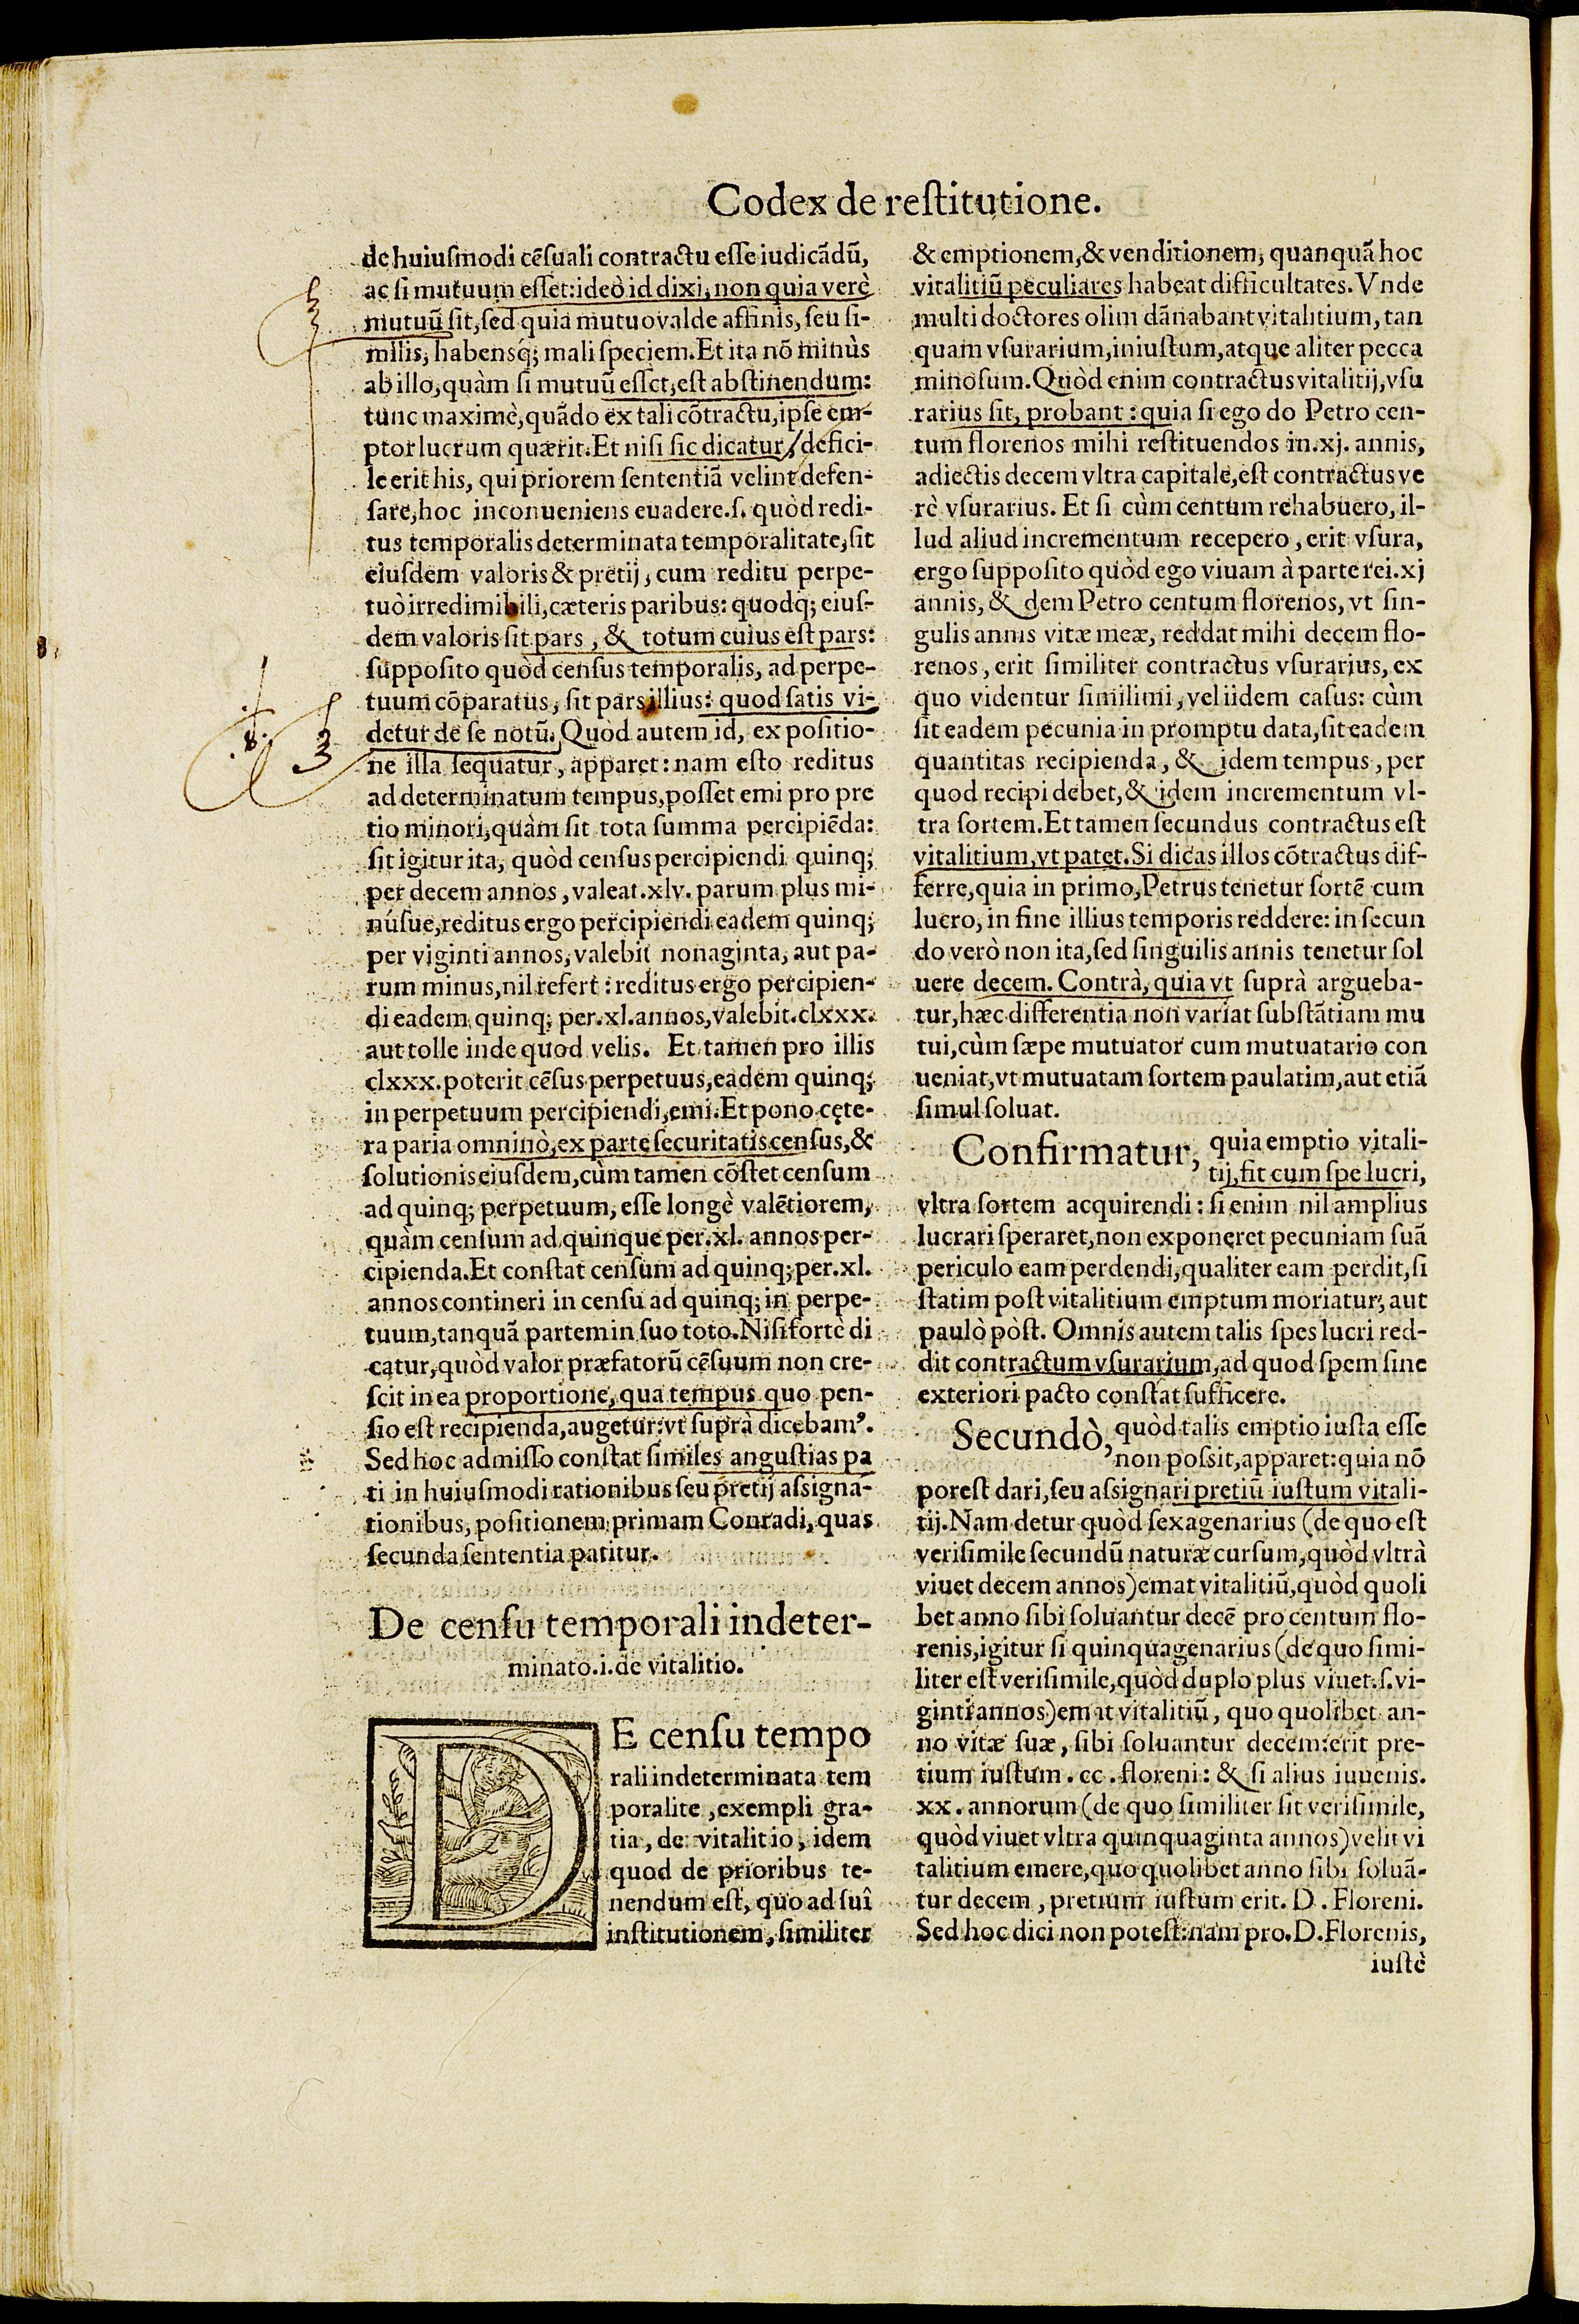 Codex de reſtitutione.
de huiuſmodi cēſuali contractu eſſe iudicãdũ,
ac ſi mutuum eſſet: ideò id dixi, non quia verè
mutuũ ſit, ſed quia mutuo valde affinis, ſeu ſi-
milis, habensq́; mali ſpeciem. Et ita nõ minùs
ab illo, quàm ſi mutuũ eſſet, eſt abſtinendum:
tunc maximè, quãdo ex tali cõtractu, ipſe em-
ptor lucrum quærit. Et niſi ſic dicatur, defici-
le erit his, qui priorem ſententiã velint defen-
ſare, hoc inconueniens euadere. ſ. quòd redi-
tus temporalis determinata temporalitate, ſit
eiuſdem valoris & pretij, cum reditu perpe-
tuò irredimibili, cæteris paribus: quodq; eiuſ-
dem valoris ſit pars, & totum cuius eſt pars:
ſuppoſito quòd cenſus temporalis, ad perpe-
tuum cõparatus, ſit pars illius: quod ſatis vi-
detur de ſe notũ. Quòd autem id, ex poſitio-
ne illa ſequatur, apparet: nam eſto reditus
ad determinatum tempus, poſſet emi pro pre
tio minori, quàm ſit tota ſumma percipiēda:
ſit igitur ita, quòd cenſus percipiendi quinq;
per decem annos, valeat. xlv. parum plus mi-
núſue, reditus ergo percipiendi eadem quinq;
per viginti annos, valebit nonaginta, aut pa-
rum minus, nil refert: reditus ergo percipien-
di eadem quinq; per. xl. annos, valebit. clxxx.
aut tolle inde quod velis. Et tamen pro illis
clxxx. poterit cēſus perpetuus, eadem quinq;
in perpetuum percipiendi, emi. Et pono cęte-
ra paria omninò, ex parte ſecuritatis cenſus, &
ſolutionis eiuſdem, cùm tamen cõſtet cenſum
ad quinq; perpetuum, eſſe longè valētiorem,
quàm cenſum ad quinque per. xl. annos per-
cipienda. Et conſtat cenſum ad quinq; per. xl.
annos contineri in cenſu ad quinq; in perpe-
tuum, tanquã partem in ſuo toto. Niſi fortè di
catur, quòd valor præfatorũ cēſuum non cre-
ſcit in ea proportione, qua tempus quo pen-
ſio eſt recipienda, augetur: vt ſuprà dicebamꝰ.
Sed hoc admiſſo conſtat ſimiles anguſtias pa
ti in huiuſmodi rationibus ſeu pretij aſsigna-
tionibus, poſitionem primam Conradi, quas
ſecunda ſententia patitur.
De cenſu temporali indeter-
minato. i. de vitalitio.
DE cenſu tempo
rali indeterminata tem
poralite, exempli gra-
tia, de vitalitio, idem
quod de prioribus te-
nendum eſt, quo ad ſuî
inſtitutionem, ſimiliter
& emptionem, & venditionem, quanquã hoc
vitalitiũ peculiares habeat difficultates. Vnde
multi doctores olim dãnabant vitalitium, tan
quam vſurarium, iniuſtum, atque aliter pecca
minoſum. Quòd enim contractus vitalitij, vſu
rarius ſit, probant: quia ſi ego do Petro cen-
tum florenos mihi reſtituendos in. xj. annis,
adiectis decem vltra capitale, eſt contractus ve
rè vſurarius. Et ſi cùm centum rehabuero, il-
lud aliud incrementum recepero, erit vſura,
ergo ſuppoſito quòd ego viuam â parte rei. xj
annis, & dem Petro centum florenos, vt ſin-
gulis annis vitæ meæ, reddat mihi decem flo-
renos, erit ſimiliter contractus vſurarius, ex
quo videntur ſimilimi, vel iidem caſus: cùm
ſit eadem pecunia in promptu data, ſit eadem
quantitas recipienda, & idem tempus, per
quod recipi debet, & idem incrementum vl-
tra ſortem. Et tamen ſecundus contractus eſt
vitalitium, vt patet. Si dicas illos cõtractus dif-
ferre, quia in primo, Petrus tenetur ſortē cum
lucro, in fine illius temporis reddere: in ſecun
do verò non ita, ſed ſinguilis annis tenetur ſol
uere decem. Contrà, quia vt ſuprà argueba-
tur, hæc differentia non variat ſubſtãtiam mu
tui, cùm ſæpe mutuator cum mutuatario con
ueniat, vt mutuatam ſortem paulatim, aut etiã
ſimul ſoluat.
Confirmatur, quia emptio vitali-
tij, fit cum ſpe lucri,
vltra ſortem acquirendi: ſi enim nil amplius
lucrari ſperaret, non exponeret pecuniam ſuã
periculo eam perdendi, qualiter eam perdit, ſi
ſtatim poſt vitalitium emptum moriatur, aut
paulò pòſt. Omnis autem talis ſpes lucri red-
dit contractum vſurarium, ad quod ſpem ſine
exteriori pacto conſtat ſufficere.
Secundò, quòd talis emptio iuſta eſſe
non poſsit, apparet: quia nõ
poreſt dari, ſeu aſsignari pretiũ iuſtum vitali-
tij. Nam detur quòd ſexagenarius (de quo eſt
veriſimile ſecundũ naturæ curſum, quòd vltrà
viuet decem annos) emat vitalitiũ, quòd quoli
bet anno ſibi ſoluantur decē pro centum flo-
renis, igitur ſi quinquagenarius (de quo ſimi-
liter eſt veriſimile, quòd duplo plus viuet. ſ. vi-
ginti annos) emat vitalitiũ, quo quolibet an-
no vitæ ſuæ, ſibi ſoluantur decem: erit pre-
tium iuſtum. cc. floreni: & ſi alius iuuenis.
xx. annorum (de quo ſimiliter ſit veriſimile,
quòd viuet vltra quinquaginta annos) velit vi
talitium emere, quo quolibet anno ſibi ſoluã-
tur decem, pretium iuſtum erit. D. Floreni.
Sed hoc dici non poteſt: nam pro. D. Florenis,
iuſtè